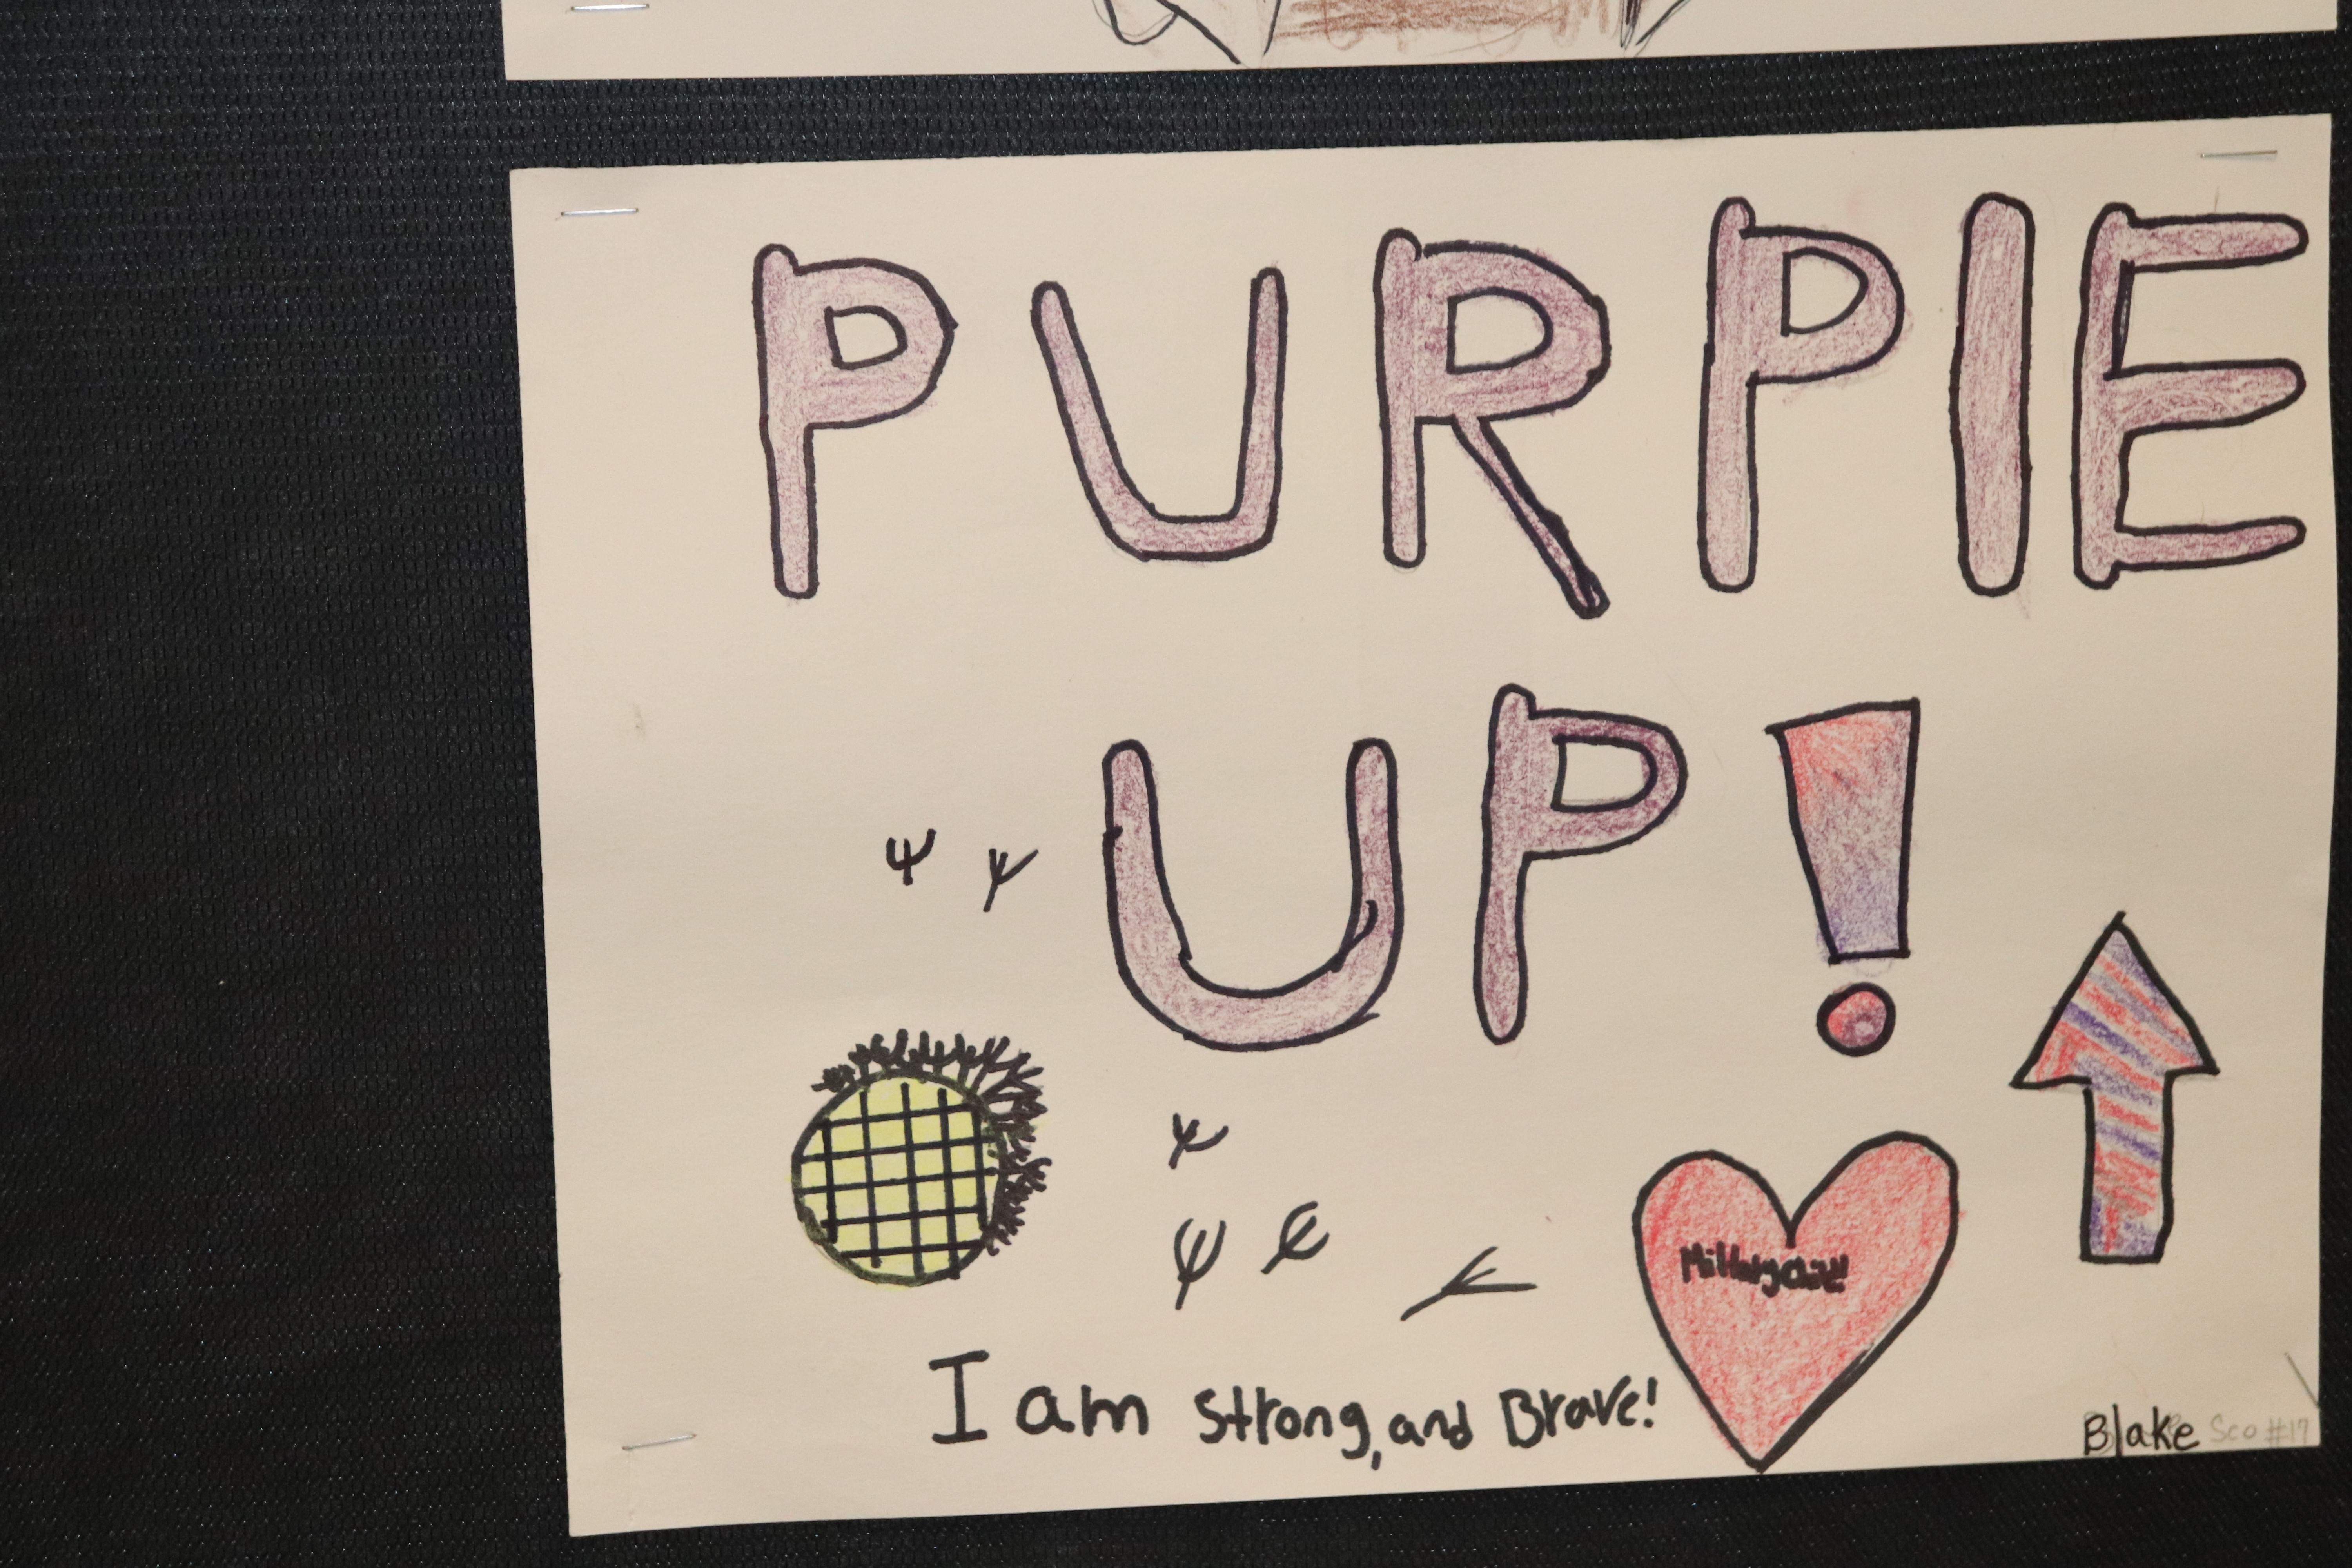 PURPlE
UP!
Military child!
I am strong, and Brave!
Blake Sco #17